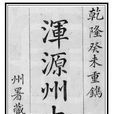 乾隆癸未重鐫
渾源州
州署藏